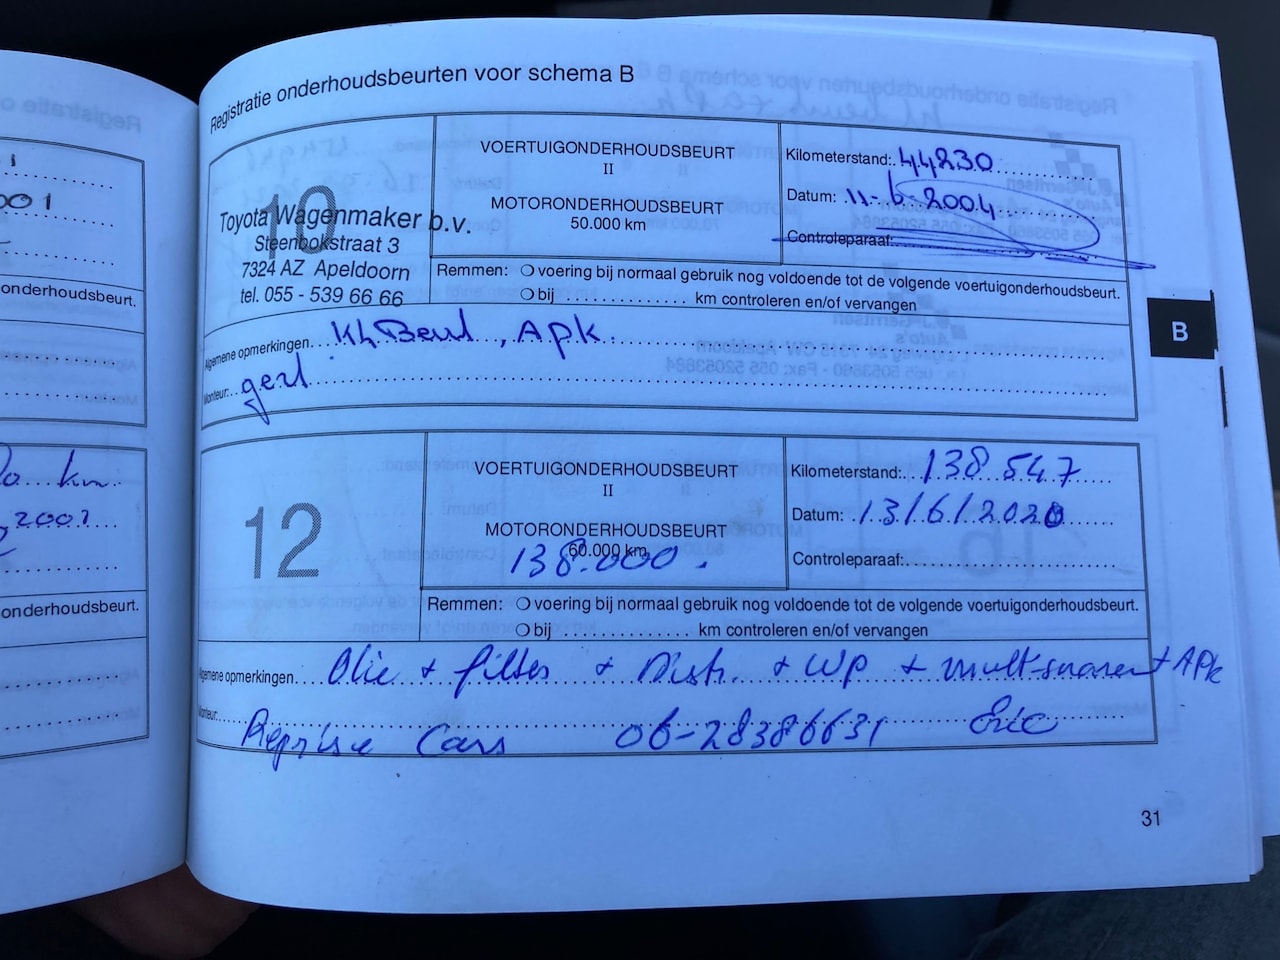 Registratie onderhoudsbeurten voor schema B
10
Toyota Wagenmaker b.v.
Steenbokstraat 3
7324 AZ Apeldoorn
tel. 055 - 539 66 66
VOERTUIGONDERHOUDSBEURT
II
MOTORONDERHOUDSBEURT
50.000 km
Kilometerstand: 44230
Datum: 11-6-2004
Controleparaaf:
Remmen: voering bij normaal gebruik nog voldoende tot de volgende voertuigonderhoudsbeurt.
bij km controleren en/of vervangen
Algemene opmerkingen Kl. Beurt, Apk.
Monteur: gert
12
VOERTUIGONDERHOUDSBEURT
II
MOTORONDERHOUDSBEURT
60.000 km
138.000.
Kilometerstand: 138.547
Datum: 13/6/2020
Controleparaaf:
Remmen: voering bij normaal gebruik nog voldoende tot de volgende voertuigonderhoudsbeurt.
bij km controleren en/of vervangen
Algemene opmerkingen Olie + filter + Distr. + WP + multisnaren + APK
Monteur: Reprise Cars 06-28386631 Eric
31
B
001
onderhoudsbeurt.
km.
2001
onderhoudsbeurt.